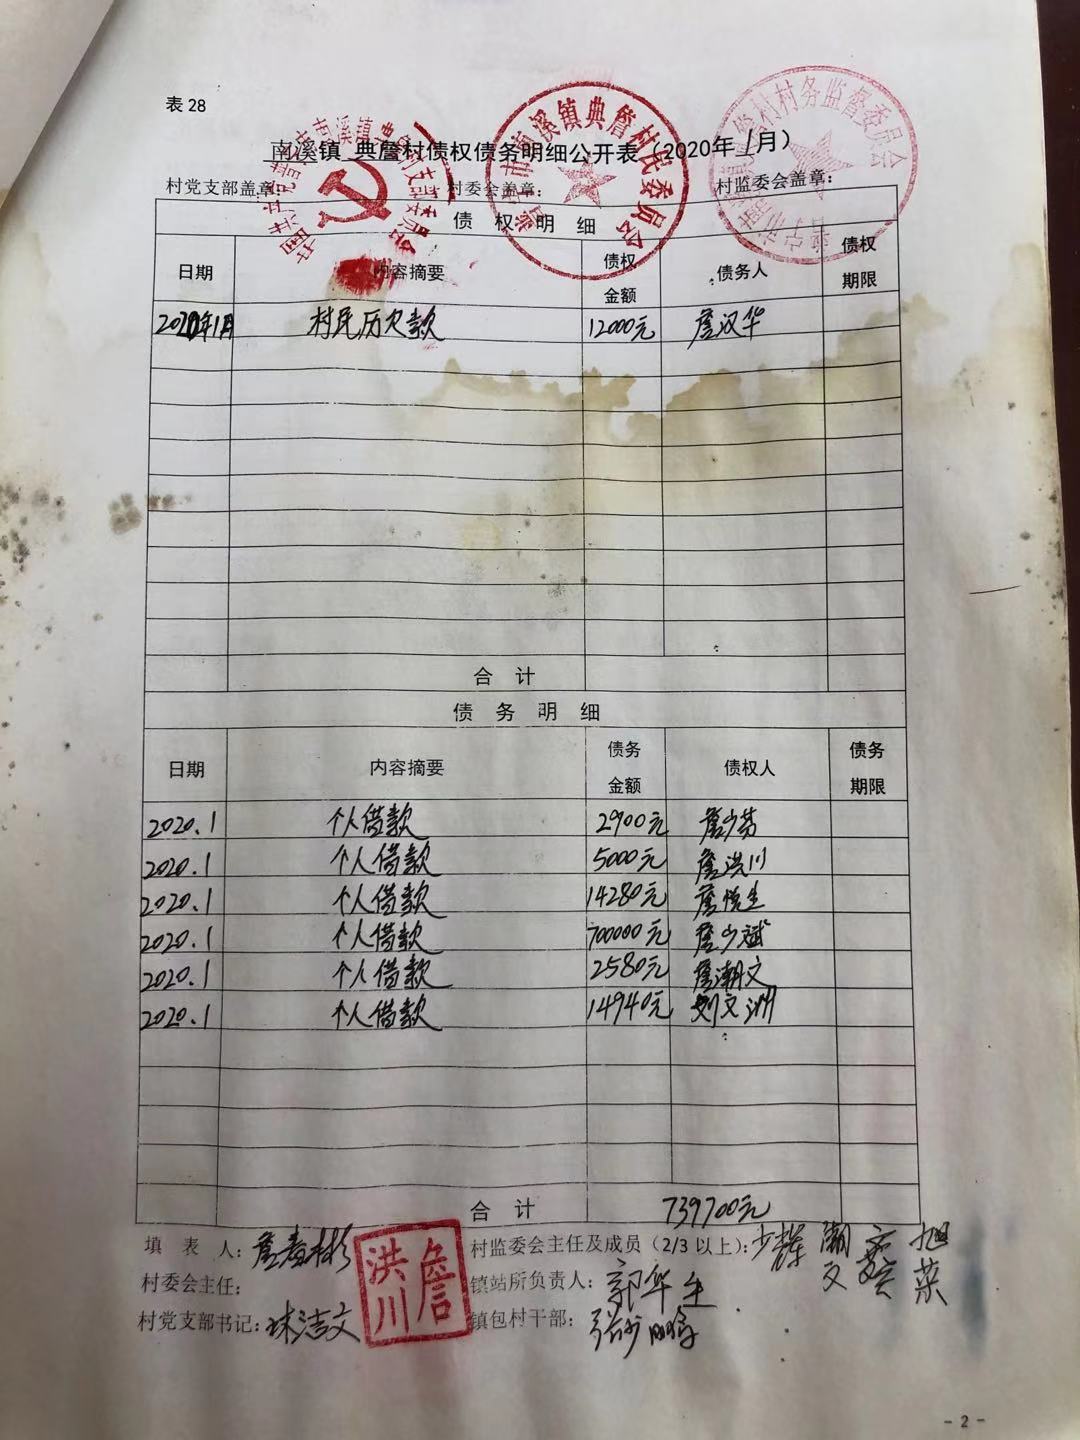 表 28
南溪镇 典詹村债权债务明细公开表（2020年1月）
村党支部盖章： 村委会盖章： 村监委会盖章：
债 权 明 细
日期 内容摘要 债权金额 债务人 债权期限
2020年1月 村民历欠款 12000元 詹汉华
合 计
债 务 明 细
日期 内容摘要 债务金额 债权人 债务期限
2020.1 个人借款 2900元 詹少芬
2020.1 个人借款 5000元 詹洪川
2020.1 个人借款 14280元 詹悦生
2020.1 个人借款 700000元 詹少斌
2020.1 个人借款 2580元 詹潮文
2020.1 个人借款 14940元 刘文洲
合 计 739700元
填 表 人： 村监委会主任及成员（2/3 以上）：
村委会主任： 詹洪川 镇站所负责人：郭华生
村党支部书记： 镇包村干部：
- 2 -